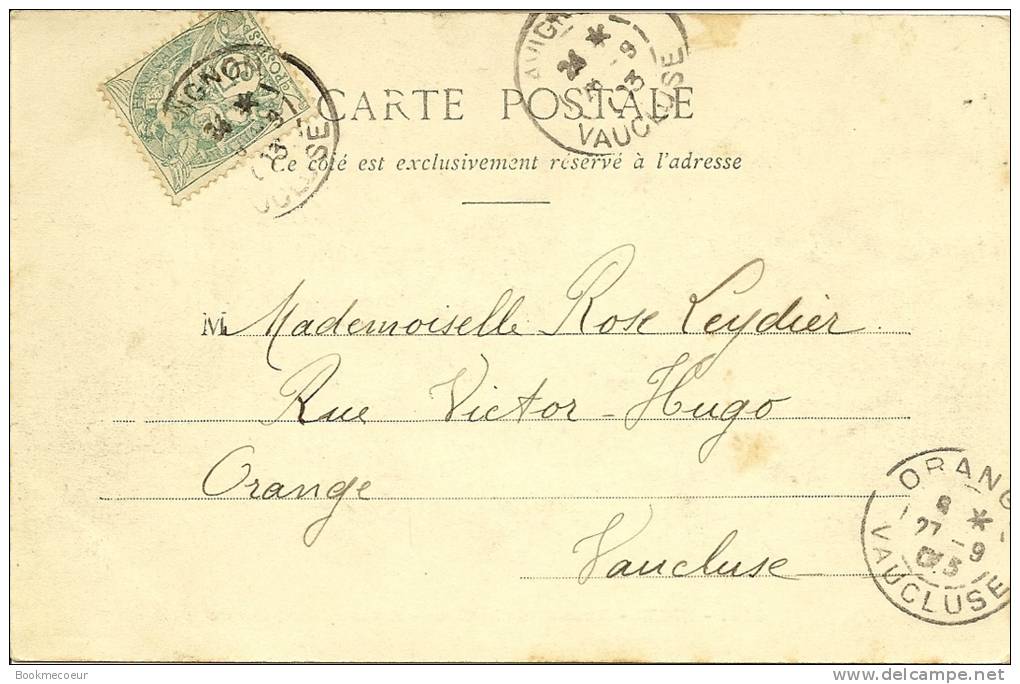 CARTE POSTALE
Ce côté est exclusivement réservé à l'adresse
AVIGN
VAUCLUSE
M. Mademoiselle Rose Leydier.
Rue Victor-Hugo
Orange
Vaucluse
ORANG
8
27 - 9
03
VAUCLUSE
Bookmecoeur
www.delcampe.net